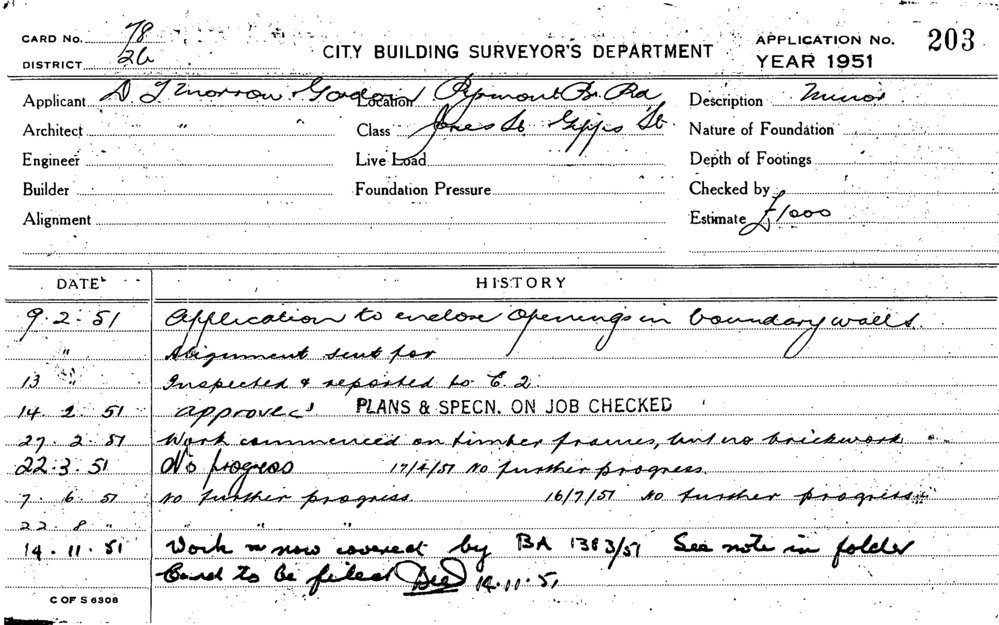 CARD No. 78
DISTRICT 26
CITY BUILDING SURVEYOR'S DEPARTMENT
APPLICATION No. 203
YEAR 1951
Applicant D T Morrow & Gordon
Location Pyrmont Br. Rd
Description Minor
Architect "
Class Jones St Gipps St
Nature of Foundation
Engineer
Live Load
Depth of Footings
Builder
Foundation Pressure
Checked by
Alignment
Estimate £1000
DATE HISTORY
9.2.51 Application to enclose openings in boundary walls.
" Alignment sent for
13 " Inspected & reported to E.2.
14.2.51 approved PLANS & SPECN. ON JOB CHECKED
27.2.51 Work commenced on timber frames, but no brickwork
22.3.51 No progress 17/4/51 No further progress.
7.6.51 No further progress. 16/7/51 No further progress.
22.8 " " " "
14.11.51 Work now covered by BA 1383/51 See note in folder
Card to be filed 14.11.51
C OF S 6308